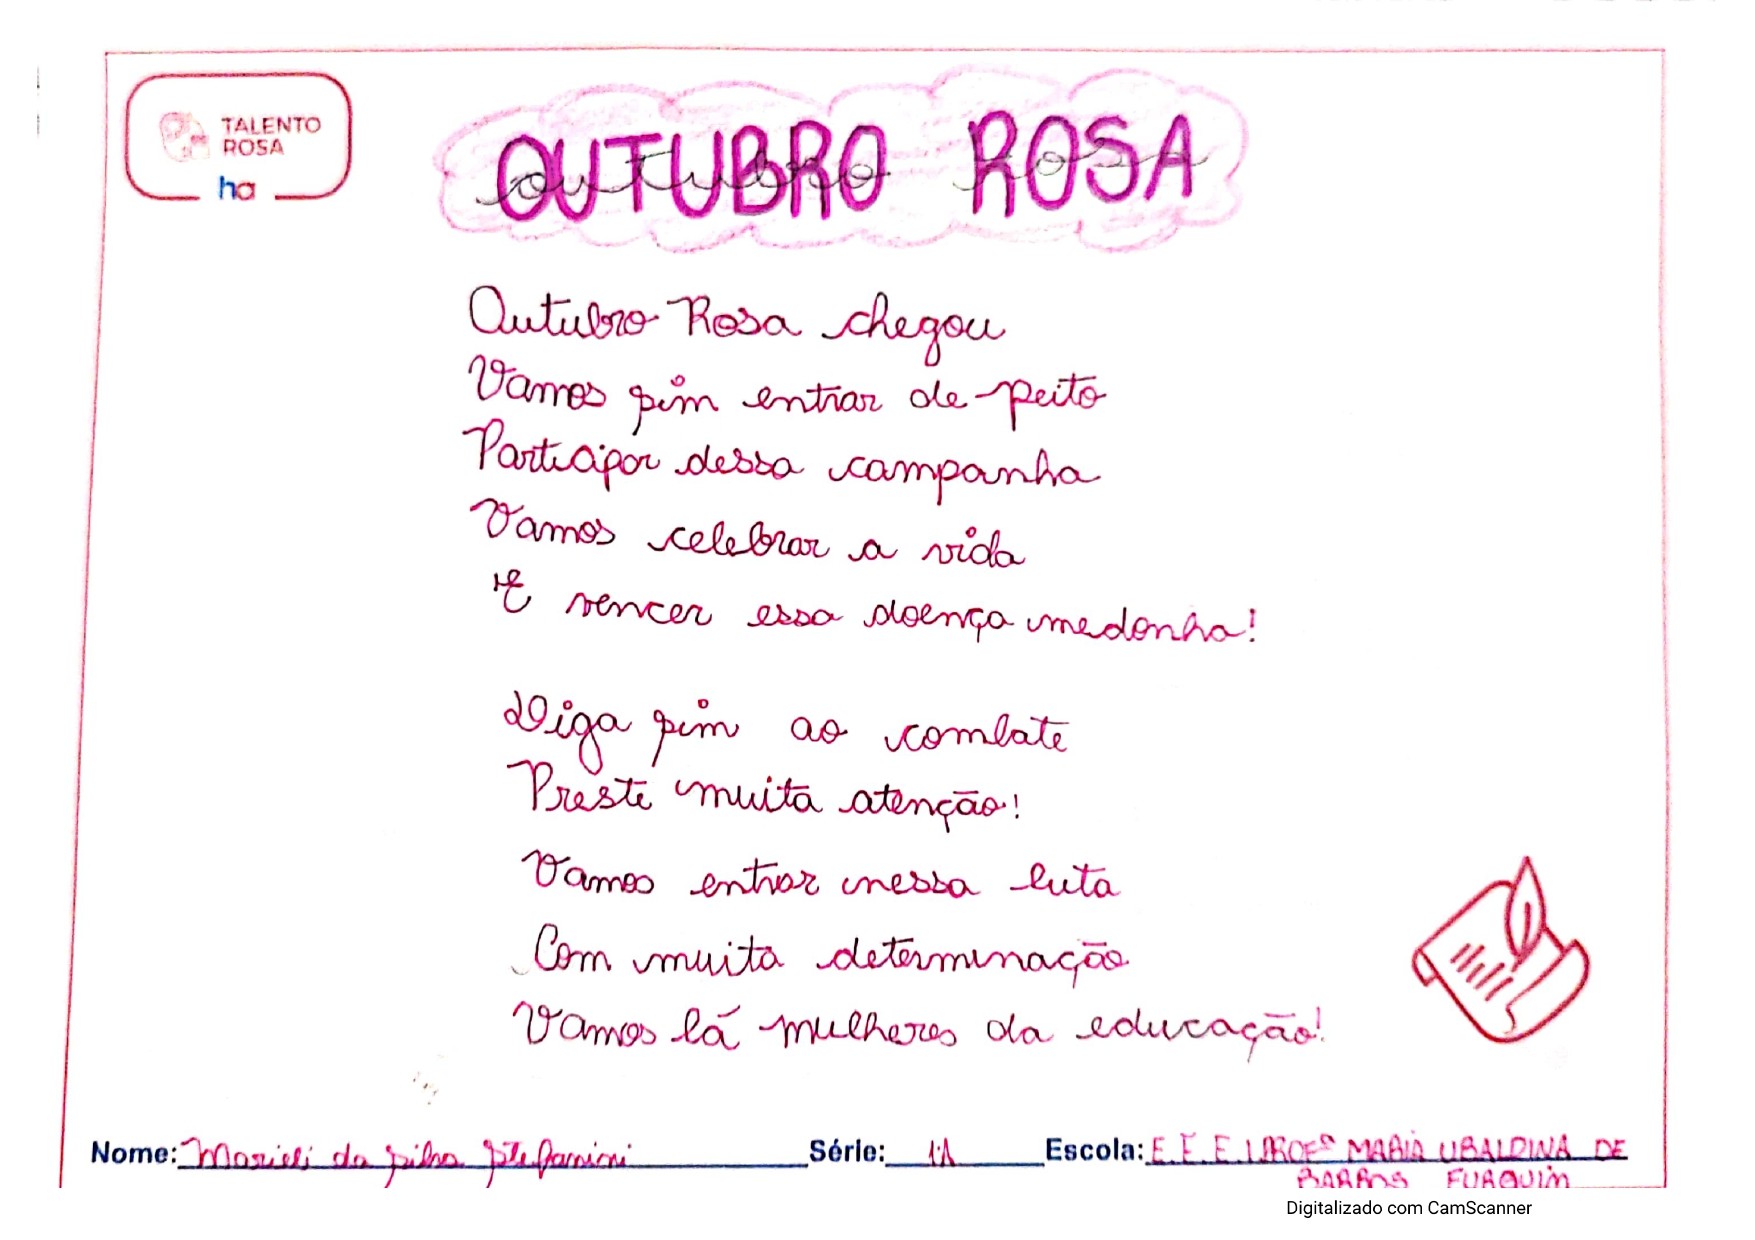 TALENTO
ROSA
ha
OUTUBRO ROSA
Outubro Rosa chegou
Vamos sim entrar de peito
Participar dessa campanha
Vamos celebrar a vida
E vencer essa doença medonha!
Diga sim ao combate
Preste muita atenção!
Vamos entrar nessa luta
Com muita determinação
Vamos lá mulheres da educação!
Nome: Marieli da silva Stefanini Série: 1ºA Escola: E. E. MARIA UBALDINA DE
BARROS FURQUIM
Digitalizado com CamScanner